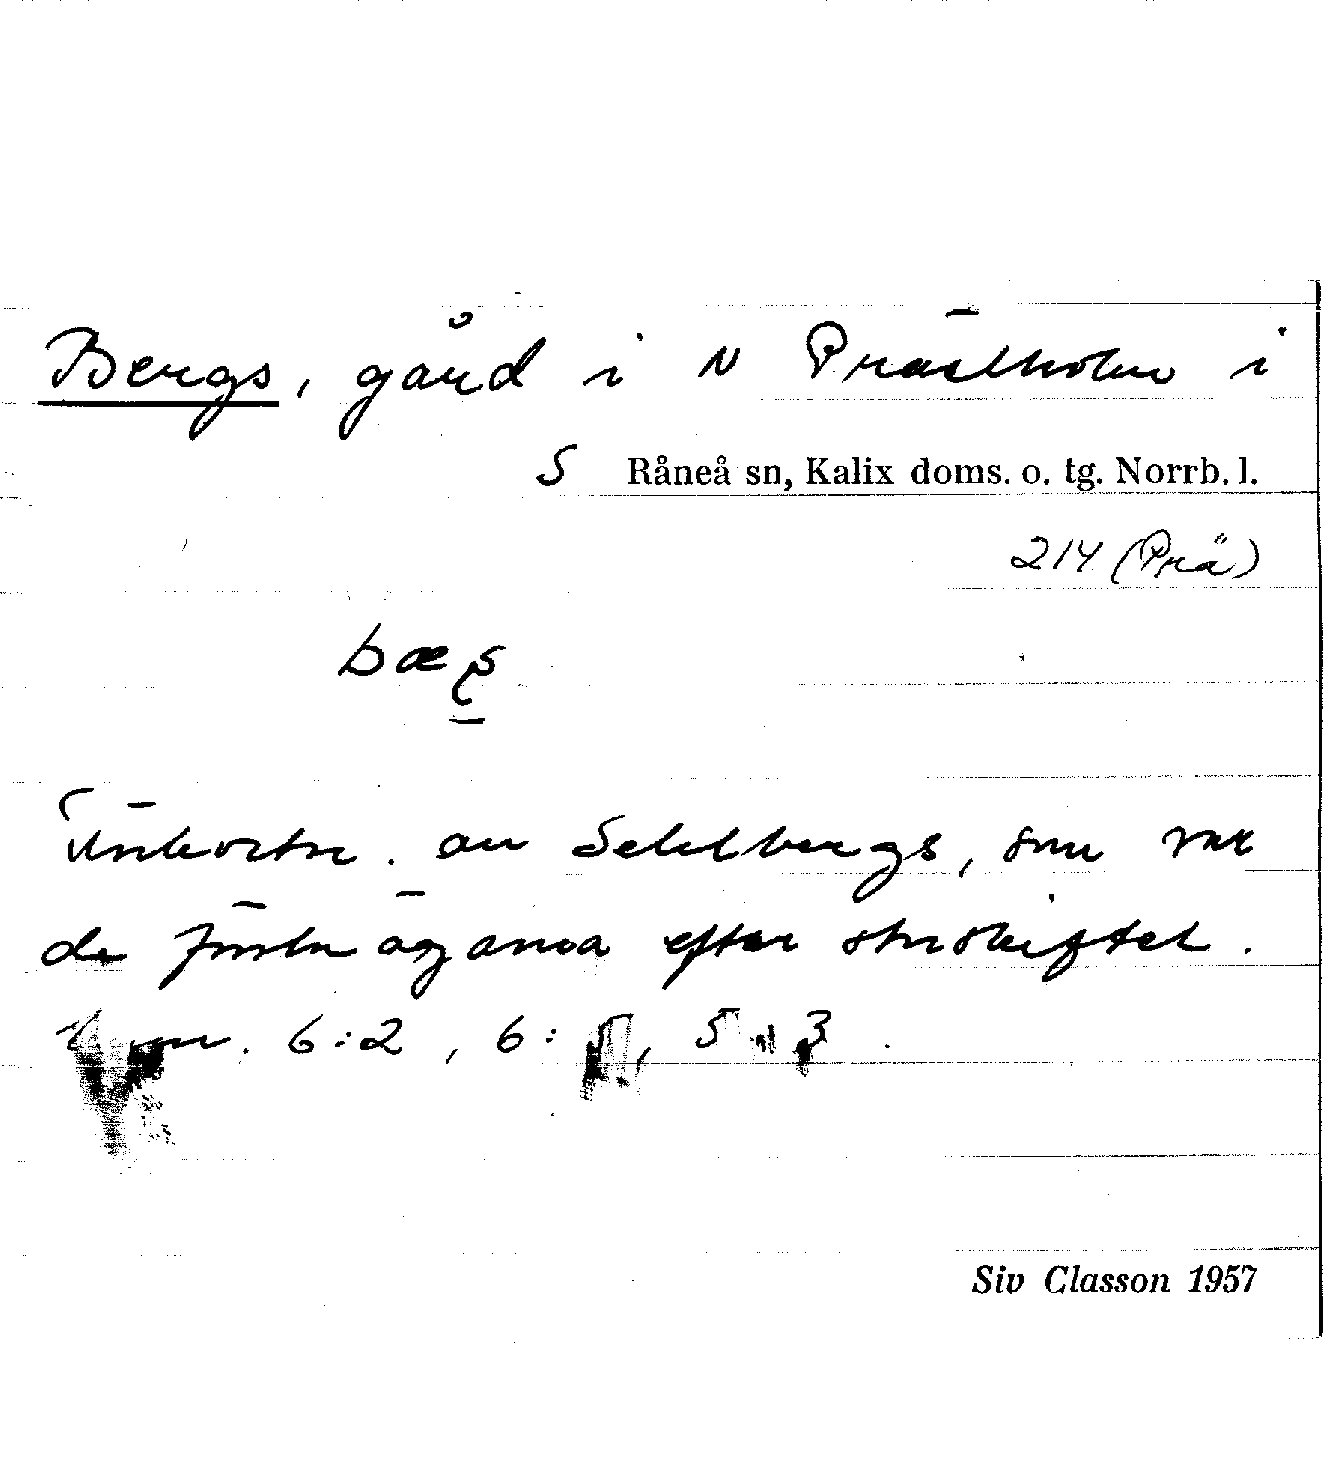 Bergs, gård i N Prästholm i
S Råneå sn, Kalix doms. o. tg. Norrb. l.
214 (Prä)
bæʂ
av Selbergs, som var
de första ägarna efter storskiftet.
6:2, 6:5, 5:3.
Siv Classon 1957